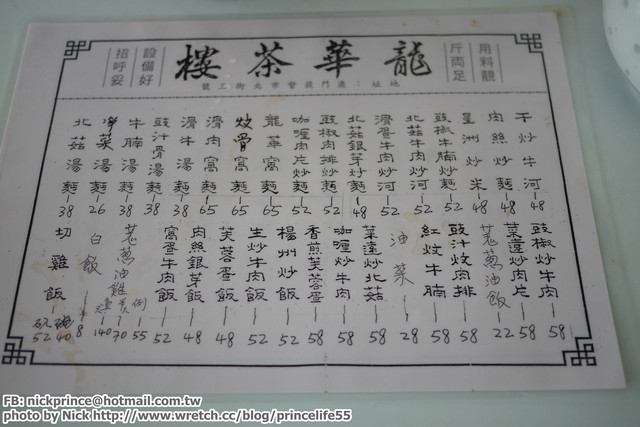 用料靚
斤両足
龍華茶樓
設備好
招呼妥
地址：澳門提督市北街三號
干炒牛河 48
肉絲炒麵 48
星洲炒米 48
豉椒牛腩炒麵 52
北菇牛肉炒河 52
濕蛋牛肉炒河 52
北菇銀芽炒麵 48
豉椒肉排炒麵 52
咖喱肉片炒麵 52
龍華窩麵 65
炆骨窩麵 65
滑肉窩麵 65
滑牛湯麵 38
豉汁骨湯麵 38
牛腩湯麵 38
淨菜湯麵 26
北菇湯麵 38
豉椒炒牛肉 58
菜遠炒肉片 58
葱油飯 22
豉汁炆肉排 58
紅炆牛腩 58
油菜 28
菜遠炒北菇 58
咖喱炒牛肉 58
香煎芙蓉蛋 58
楊州炒飯 52
生炒牛肉飯 52
芙蓉蛋飯 48
肉絲銀芽飯 48
窩蛋牛肉飯 52
葱油雞 例 55 70 140
白飯 8
切雞飯 碗 40 52
FB: nickprince@hotmail.com.tw
photo by Nick http://www.wretch.cc/blog/princelife55